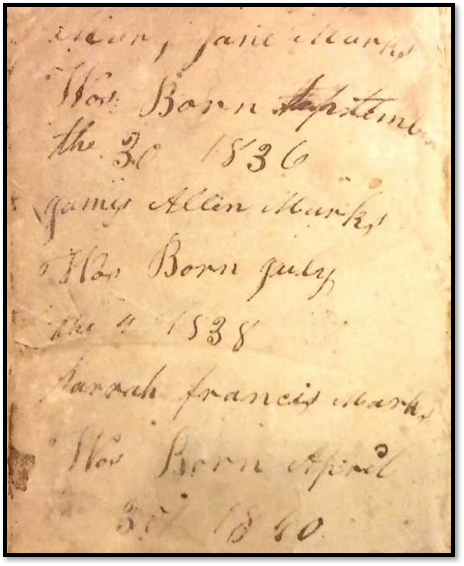 Mary Jane Marks
Was Born Septembe
the 30 1836
Jamys Allin Marks
Was Born july
the 11 1838
Sarrah francis Marks
Was Born April
30 1840